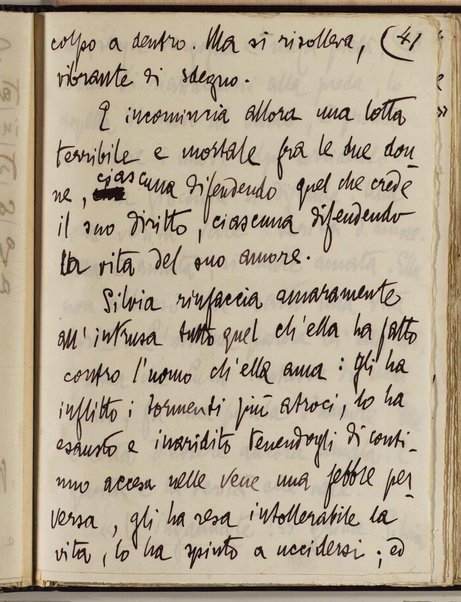 colpo a dentro. Ma si risolleva, (41
vibrante di sdegno.
E incomincia allora una lotta
terribile e mortale fra le due don-
ne, ciascuna difendendo quel che crede
il suo diritto, ciascuna difendendo
la vita del suo amore.
Silvia rinfaccia amaramente
all'intrusa tutto quel ch'ella ha fatto
contro l'uomo ch'ella ama: gli ha
inflitto i tormenti più atroci, lo ha
esausto e inaridito tenendogli di conti-
nuo accesa nelle vene una febbre per-
versa, gli ha resa intollerabile la
vita, lo ha spinto a uccidersi; ed